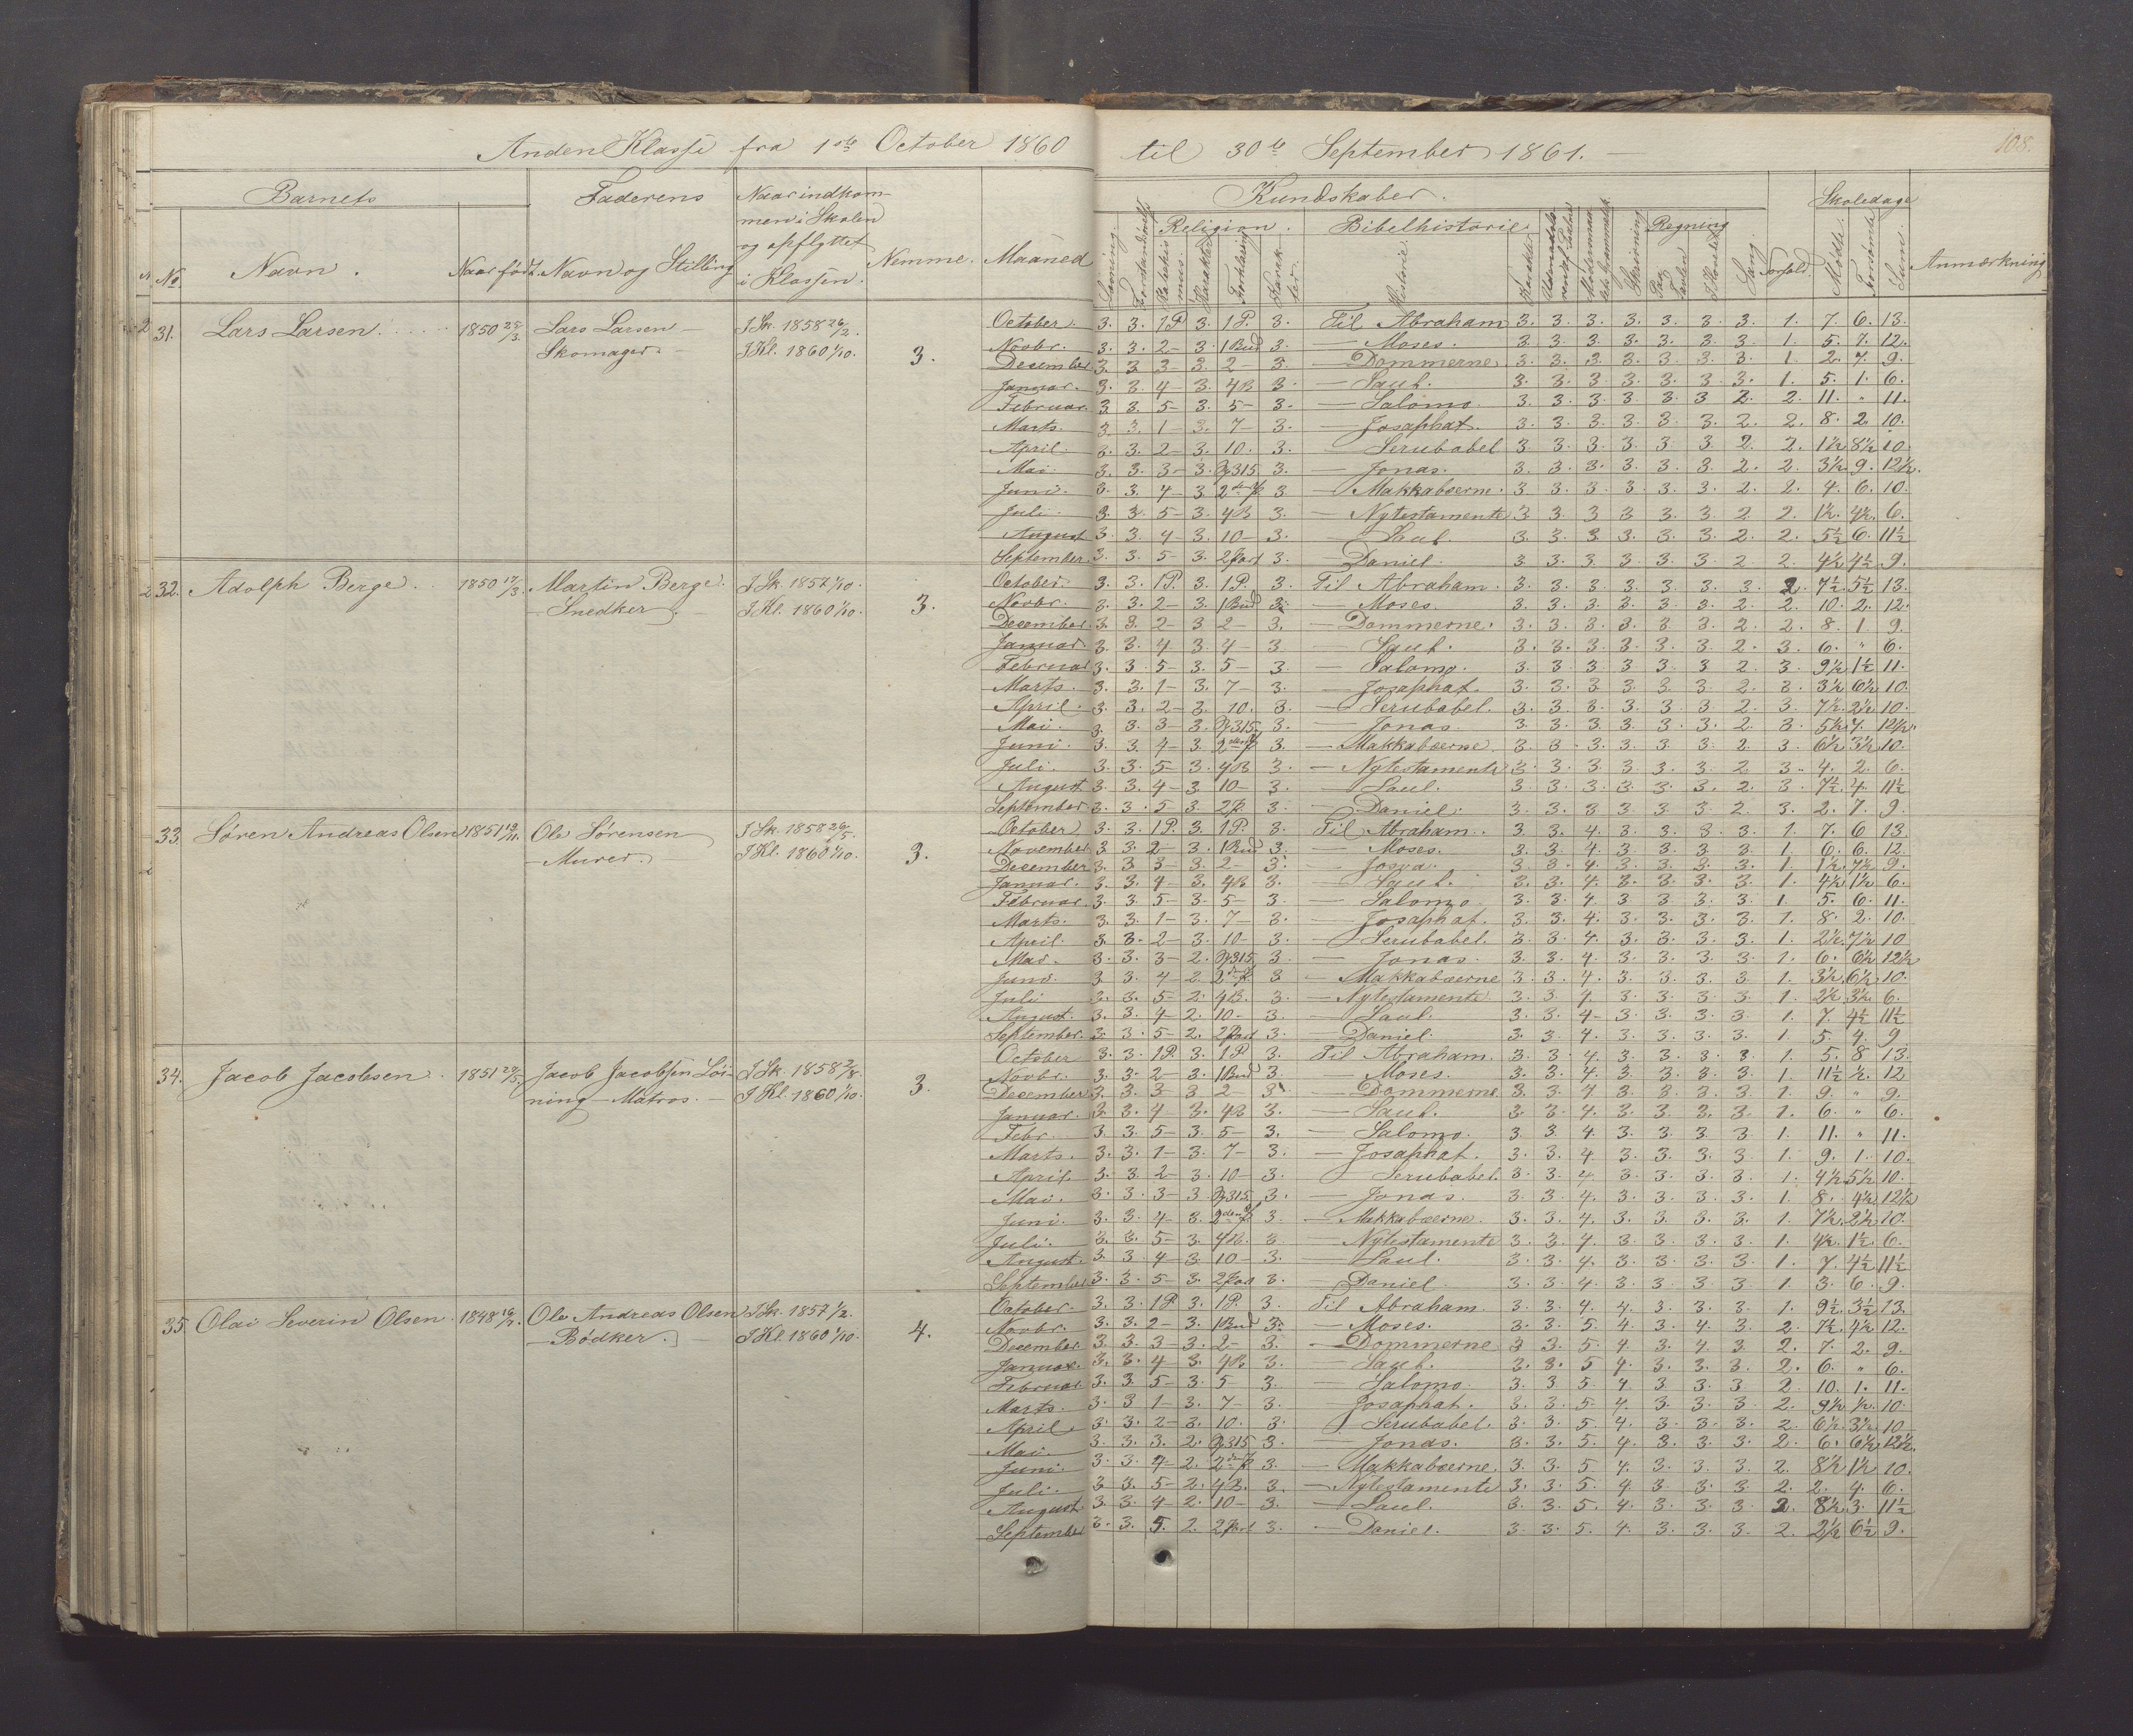 108.
Anden Klasse fra 1ste October 1860 til 30te September 1861.
Barnets Faderens Naar indkom- Kundskaber. Skoledage
men i Skolen Religion. Bibelhistorie Regning
og opflyttet
No Navn. Naar født. Navn og Stilling i Klassen. Nemme. Maaned Læsning. Historie. Skrivning Sang. Forhold. Mødte. Forsømte Sum. Anmærkning
31. Lars Larsen. 1850 25/3. Lars Larsen I Sk. 1858 26/2. October. 3. 3. 1 P 3. 1 P. 3. Til Abraham 3. 3. 3. 3. 3. 3. 3. 1. 7. 6. 13.
Skomager. I Kl. 1860 1/10. 3. Novbr. 3. 3. 2 – 3. 1 Bud 3. – Moses. 3. 3. 3. 3. 3. 3. 3. 1. 5. 7. 12.
December 3. 3 3 – 3. 2 – 3. – Dommerne. 3. 3. 3. 3. 3. 3. 3. 1. 2. 7. 9.
Januar. 3. 3. 4 – 3. 4 B 3. – Saul. 3. 3. 3. 3. 3. 3. 3. 1. 5. 1. 6.
Februar. 3. 3. 5 – 3. 5 – 3. – Salomo. 3. 3. 3. 3. 3. 3 2. 2. 11. " 11.
Marts. 3 3. 1 – 3. 7 – 3. – Josaphat. 3. 3. 3. 3. 3. 3. 2. 2. 8. 2. 10.
April. 3. 3. 2 – 3. 10. 3. – Serubabel 3 3. 3. 3. 3. 3 2. 2. 1½ 8½ 10.
Mai. 3. 3. 3 – 3. 315 3. – Jonas. 3. 3. 3. 3. 3. 3. 2. 2. 3½ 9. 12½.
Juni. 3. 3. 4 – 3. 3 – Makkabæerne. 3. 3. 3. 3. 3. 3. 2. 2. 4. 6. 10.
Juli. 3. 3. 5 – 3. 4 B 3. – Nytestamente 3 3. 3 3 3. 3. 2 2. 1½. 4½. 6.
August 3. 3. 4 – 3. 10 – 3. – Saul 3. 3. 3. 3. 3. 3. 2. 2. 5½ 6. 11½
September. 3. 3. 5 – 3. 3. – Daniel. 3. 3. 3. 3. 3. 3. 2 2. 4½ 4½ 9.
32. Adolph Berge. 1850 17/3. Martin Berge. I Sk. 1857 1/10. October 3. 3. 1 P. 3. 1 P. 3. Til Abraham. 3. 3. 3. 3. 3. 3. 3. 2. 7½. 5½ 13.
Snedker. I Kl. 1860 1/10. 3. Novbr. 3. 3. 2 – 3. 1 Bud 3. – Moses. 3. 3. 3. 3. 3. 3. 2. 2. 10. 2. 12.
December. 3. 3. 2 – 3 2 – 3. – Dommerne. 3. 3. 3. 3. 3. 3. 2. 2. 8. 1. 9.
Januar. 3. 3. 4 3. 4 – 3 – Saul. 3. 3. 3. 3. 3. 3. 2. 3. 6. " 6.
Februar 3. 3. 5 – 3. 5 – 3. – Salomo. 3. 3. 3 3. 3. 3 2. 3. 9½ 1½ 11.
Marts. 3. 3. 1 – 3. 7 – 3. – Josaphat. 3. 3. 3. 3. 3. 3. 2. 3. 3½ 6½ 10.
April. 3. 3. 2 – 3. 10. 3. – Serubabel. 3. 3. 3. 3. 3. 3. 2. 3. 7½. 2½. 10.
Mai 3. 3. 3 – 3. 315 3. – Jonas. 3. 3. 3. 3. 3. 3. 2. 3. 5½ 7. 12½.
Juni. 3. 3. 4 – 3. 3. – Makkabæerne. 3. 3. 3. 3. 3. 3. 2. 3. 6½ 3½ 10.
Juli. 3. 3. 5 – 3. 4 B 3. – Nytestamente 3. 3. 3. 3. 3. 3. 2 3. 4. 2. 6.
August 3. 3. 4 – 3 10 – 3. – Saul. 3 3. 3. 3. 3. 3. 2. 3. 7½ 4. 11½
September 3. 3. 5 3. 3. – Daniel. 3. 3. 3 3 3 3 2. 3. 2. 7. 9.
33. Søren Andreas Olsen 1851 Ole Sørensen I Sk. 1858 26/5. October 3. 3. 1 P. 3. 1 P. 3. Til Abraham. 3. 3. 4. 3. 3. 3. 3. 1. 7. 6 13.
Murer. I Kl. 1860 1/10. 3. November 3 3 2 – 3. 1 Bud 3. – Moses. 3. 3. 4. 3. 3 3. 3 1. 6. 6. 12.
December 3 3 3 – 3. 2 – 3. – Josva. 3. 3. 4. 3. 3. 3. 3. 1. 1½. 7½. 9.
Januar. 3. 3. 4 – 3. 4 B 3. – Saul. 3. 3. 4. 3. 3. 3. 3. 1. 4½ 1½ 6.
Februar. 3. 3. 5 – 3. 5 – 3 – Salomo 3. 3. 4. 3 3. 3. 3. 1 5. 6. 11.
Marts. 3. 3. 1 – 3. 7 – 3. – Josaphat. 3. 3. 4. 3. 3. 3. 3. 1. 8. 2. 10.
April. 3. 3. 2 – 3. 10 – 3. – Serubabel. 3. 3. 4. 3. 3. 3. 3. 1. 2½. 7½ 10
Mai. 3. 3. 3 – 2. 315 3. – Jonas. 3. 3. 4. 3. 3. 3. 3 1. 6. 6½ 12½
Juni. 3 3. 4 – 2. 3 – Makkabæerne 3. 3. 4. 3. 3. 3. 3 1. 3½ 6½ 10.
Juli 3. 3. 5 – 2. 4 B. 3. – Nytestamente 3. 3. 4. 3. 3. 3 3. 1. 2½ 3½. 6.
August. 3. 3. 4 – 2. 10 – 3. – Saul. 3. 3. 4 – 3. 3. 3. 3. 1. 7. 4½ 11½
September. 3. 3. 5 – 2. 3. – Daniel. 3. 3. 4. 3. 3. 3. 3. 1. 5. 4. 9.
34. Jacob Jacobsen. 1851 29/5. Jacob Jacobsen Løi- I Sk. 1858 2/8. October 3. 3. 1 P. 3. 1 P. 3. Til Abraham. 3. 3. 4. 3. 3. 3. 3. 1. 5. 8 13.
ning – Matros. I Kl. 1860 1/10. 3. Novbr. 3. 3. 2 – 3. 1 Bud 3. – Moses. 3. 3. 4. 3. 3. 3. 3. 1. 11½ ½. 12
December 3. 3. 3 3 2 3. – Dommerne. 3. 3. 4 3. 3. 3. 3. 1 9. " 9.
Januar. 3. 3. 4 – 3. 4 B 3. – Saul. 3. 3. 4. 3. 3. 3. 3. 1. 6. " 6.
Febr. 3. 3. 5 – 3. 5 – 3. – Salomo. 3. 3. 4. 3. 3. 3. 3. 1. 11. " 11.
Marts. 3. 3. 1 – 3. 7 – 3. – Josaphat. 3. 3. 4. 3. 3. 3. 3 1. 9. 1. 10.
April. 3. 3. 2 – 3. 10 – 3. – Serubabel. 3. 3. 4 3 3. 3. 3. 1. 4½ 5½ 10.
Mai. 3. 3. 3 – 3. 315 3. – Jonas. 3. 3. 4. 3. 3. 3. 3. 1. 8. 4½ 12½
Juni. 3. 3. 4 – 3. 3. – Makkabæerne. 3. 3. 4. 3. 3. 3. 3. 1. 7½ 2½ 10.
Juli. 3. 3. 5 – 3. 4 B. 3 – Nytestamente 3. 3. 4. 3. 3. 3. 3. 1. 4½. 1½. 6.
August. 3. 3. 4 – 3. 10 – 3. – Saul. 3. 3. 4. 3. 3. 3. 3. 1. 7. 4½ 11½
September 3. 3. 5 – 3. 3. – Daniel 3. 3. 4. 3. 3. 3. 3 1. 3. 6. 9.
35 Olai Severin Olsen. 1848 Ole Andreas Olsen I Sk. 1857 1/2. October. 3. 3. 1 P. 3. 1 P. 3. Til Abraham. 3. 3. 4. 4. 3. 3. 3. 1. 9½. 3½ 13.
Bødker. I Kl. 1860 1/10. 4. Novbr. 3. 3. 2 – 3. 1 Bud 3. – Moses. 3. 3. 5. 4. 3. 4. 3. 2. 7½. 4½ 12.
December. 3. 3. 3 – 3. 2 – 3. – Dommerne 3 3. 5. 4. 3. 4. 3. 2. 7. 2. 9.
Januar. 3. 3. 4 3. 4 B 3. – Saul. 3. 3. 5 4. 3. 3. 3. 2. 6. " 6.
Februar. 3. 3. 5 – 3. 5 – 3. – Salomo. 3. 3 5. 4. 3. 3. 3 2 10. 1. 11.
Marts. 3. 3 1 – 3. 7 – 3. – Josaphat. 3. 3. 5. 4. 3. 3. 3 2. 9½ ½. 10.
April. 3. 3. 2 – 3. 10. 3. – Serubabel. 3. 3. 5. 4. 3. 3. 3. 2. 6½. 3½. 10
Mai. 3. 3. 3. 2. 315 3. – Jonas. 3. 3. 5. 4. 3. 3. 3. 2. 6. 6½ 12½.
Juni. 3. 3. 4 – 2. 3. – Makkabæerne. 3. 3. 5 4. 3. 3. 3. 2. 8½ 1½ 10.
Juli. 3 3. 5 – 2. 4 B. 3. – Nytestamente 3. 3. 5. 4. 3. 3. 3. 2. 2. 4. 6.
August. 3. 3. 4 – 2. 10 – 3. – Saul. 3. 3. 5. 4. 3. 3. 3 2. 8½. 3. 11½
September 3. 3. 5. 2. 3. – Daniel. 3. 3. 5. 4. 3. 3. 3. 2. 2½ 6½ 9.